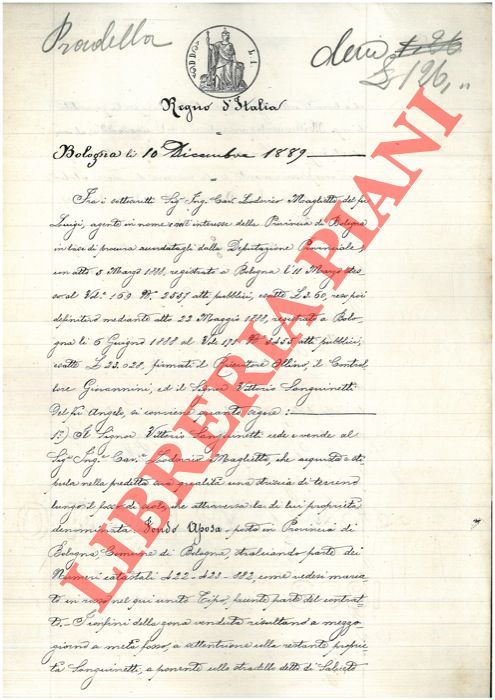 Pradella
L 126,"
Regno d'Italia
Bologna li 10 Dicembre 1889
Fra i sottoscritti Sig. Ing. Cav. Lodovico Maglietta del fu
Luigi, agente in nome ed interesse della Provincia di Bologna
in base di procura accordatagli dalla Deputazione Provinciale,
un atto 5 Marzo 1888, registrato a Bologna l'11 Marzo stes-
so al Vol. 169 N. 2557 atti pubblici, esatte L 3.60, reso poi
definitivo mediante atto 22 Maggio 1888, registrato a Bolo-
gna li 6 Giugno 1888 al Vol. 171 N. 3455 atti pubblici,
esatte L 23.028, firmati il Ricevitore Albino, il Control-
lore Giovannini, ed il Signor Vittorio Sanguinetti
del fu Angelo, si conviene quanto segue:
1º) Il Signor Vittorio Sanguinetti cede e vende al
Sig. Ing. Cav. Lodovico Maglietta, che acquista e sti-
pula nella predetta sua qualità una striscia di terreno
lungo il fosso di scolo, che attraversa la di lui proprietà
denominata Fondo Aposa, posto in Provincia di
Bologna, Comune di Bologna, stralciando parte dei
Numeri catastali 422-423-882, come vedesi marca-
to in rosso nel qui unito Tipo, facente parte del contrat-
to. I confini della zona venduta risultano a mezzo-
giorno a metà fosso, a settentrione colla restante proprie-
tà Sanguinetti, a ponente collo stradello detto di Saliceto
LIBRERIA PIANI